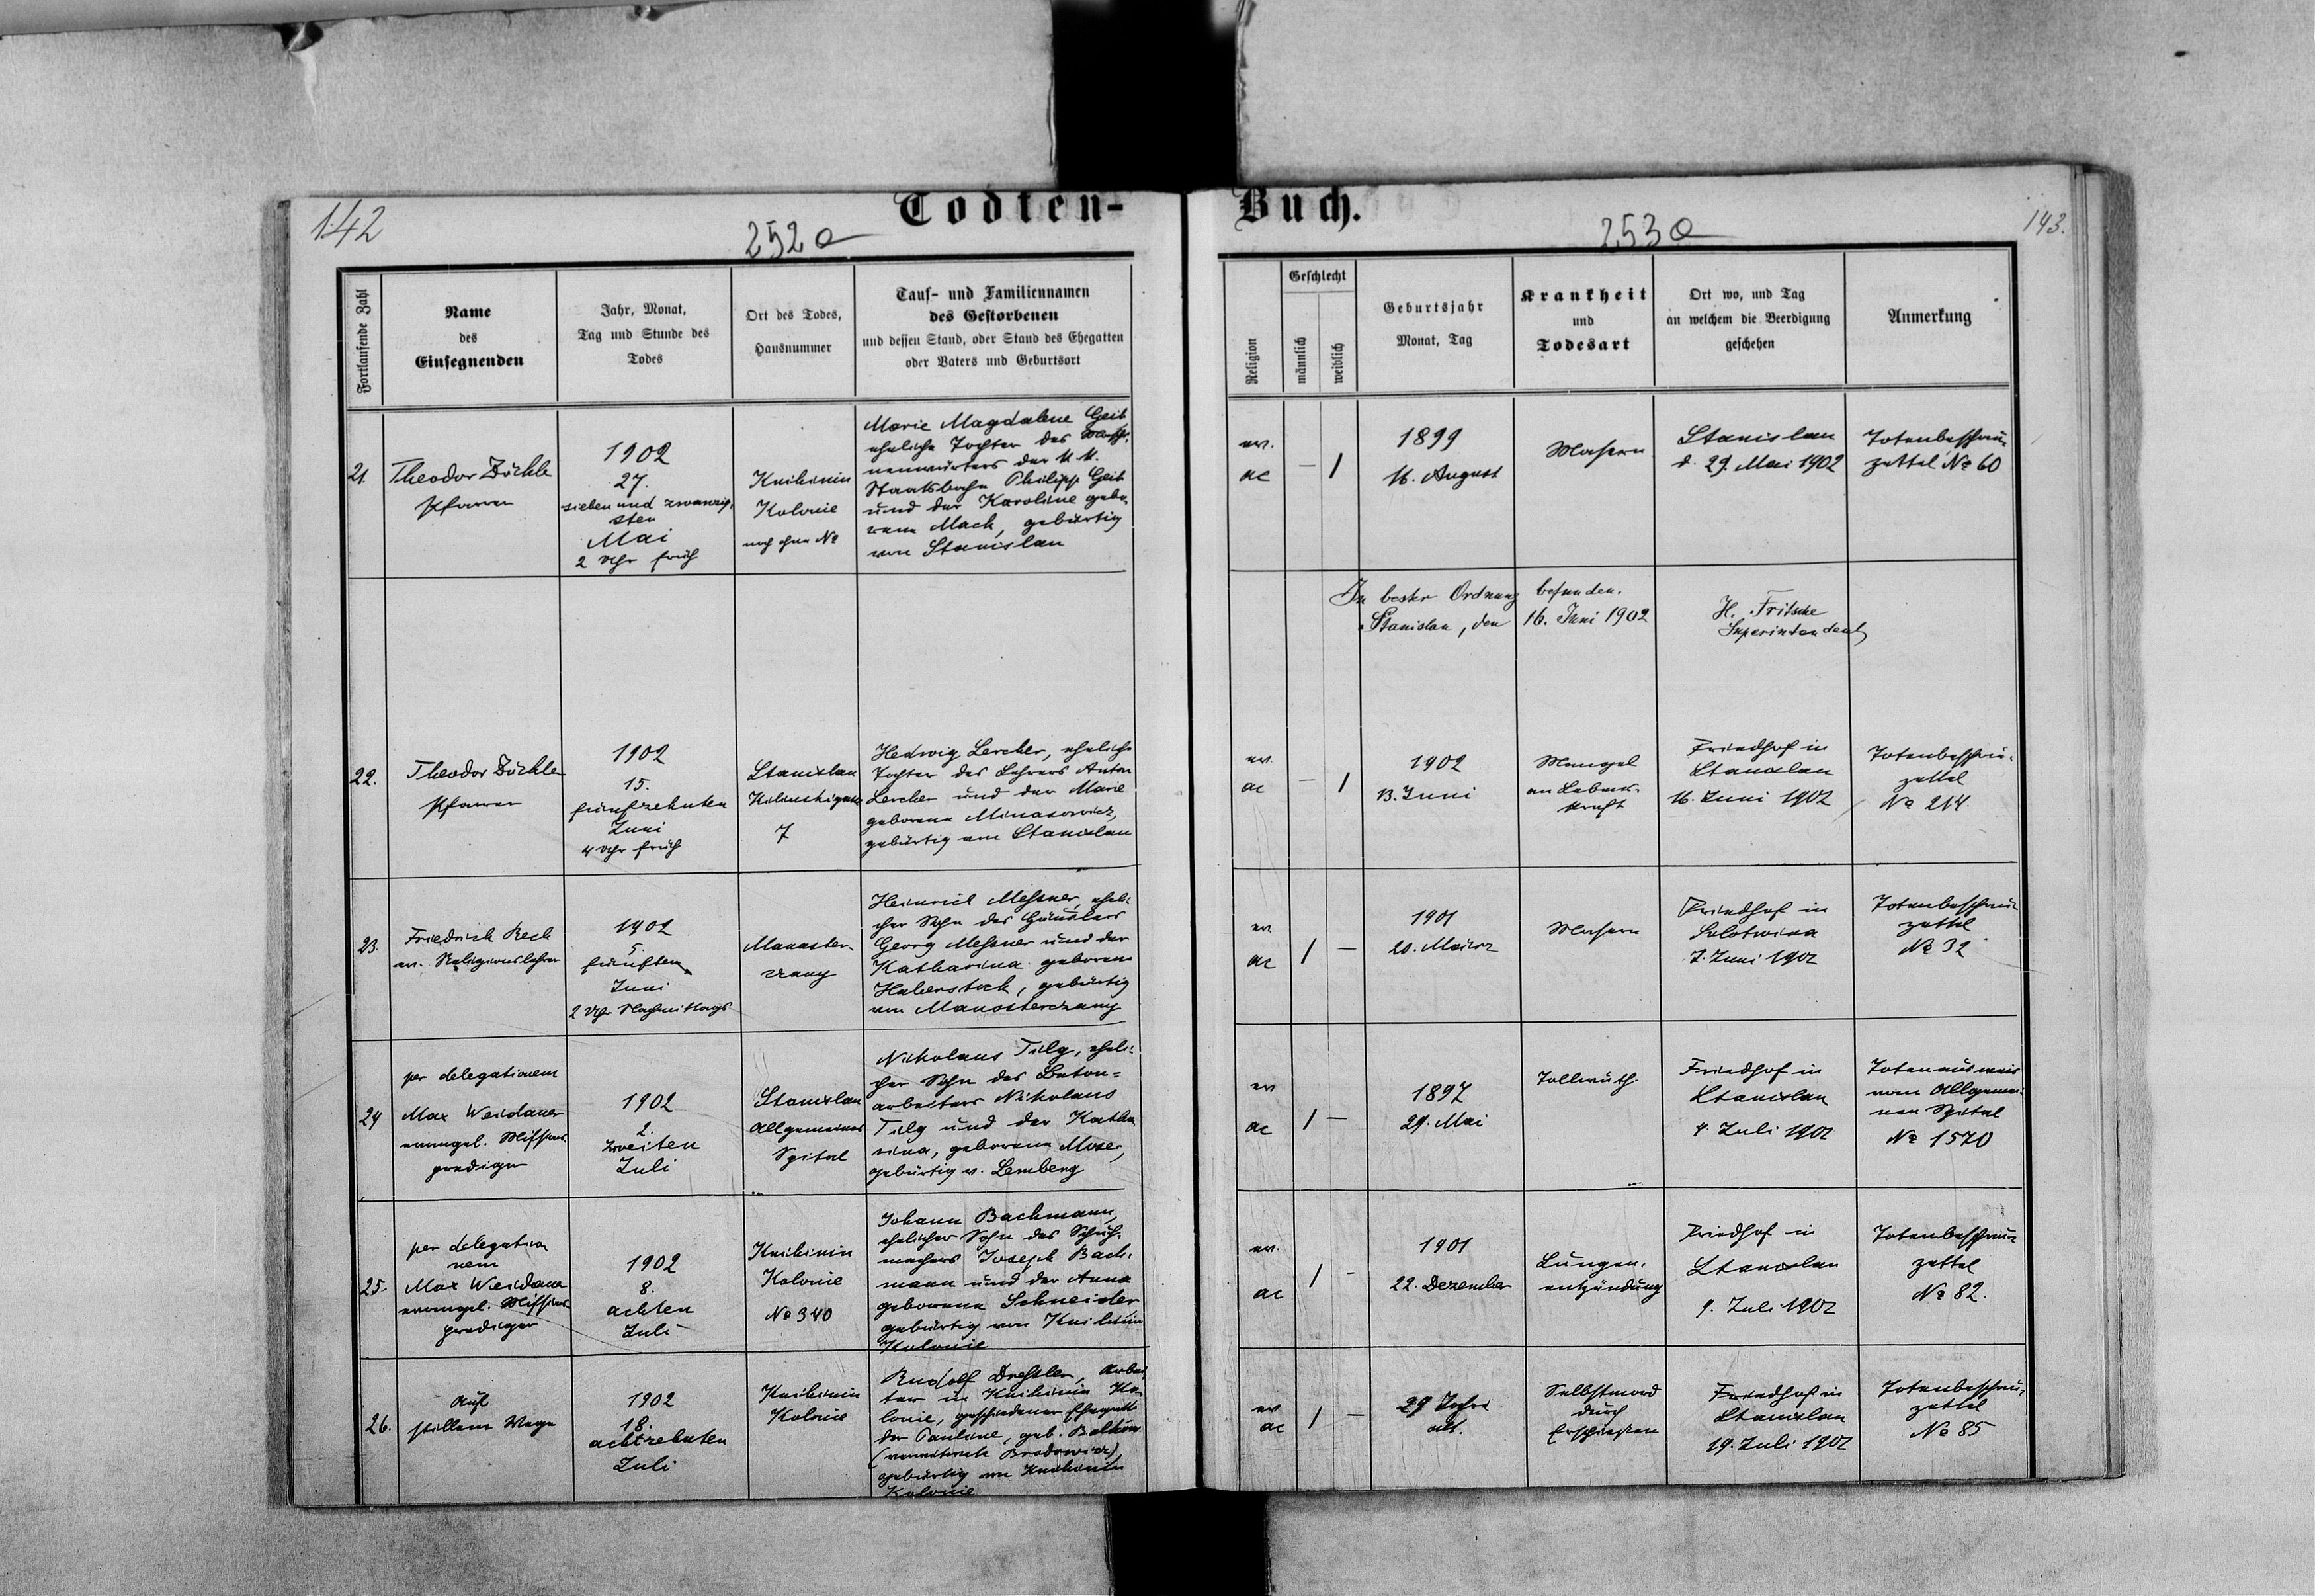 142
Todten-
Buch.
143.
252a
253a
Fortlaufende Zahl
Name
des
Einsegnenden
Jahr, Monat,
Tag und Stunde des
Todes
Ort des Todes,
Hausnummer
Tauf- und Familiennamen
des Gestorbenen
und dessen Stand, oder Stand des Ehegatten
oder Vaters und Geburtsort
Religion
Geschlecht
männlich
weiblich
Geburtsjahr
Monat, Tag
Krankheit
und
Todesart
Ort wo, und Tag
an welchem die Beerdigung
geschehen
Anmerkung
21.
Theodor Zöckler
Pfarrer
1902
27.
sieben und zwanzig-
sten
Mai
2 Uhr früh
Knihinin
Kolonie
noch ohne No
Marie Magdalene Geib
eheliche Tochter des
der K. K.
Staatsbahn Philipp Geib
und der Karoline gebo-
rene Mack, gebürtig
von Stanislau
ev.
ac
–
1
1899
16. August
Masern
Stanislau
d. 29. Mai 1902
Totenbeschau-
zettel No 60
In bester Ordnung befunden.
Stanislau, den 16. Juni 1902
H. Fritsche
Superintendent
22.
Theodor Zöckler
Pfarrer
1902
15.
fünfzehnten
Juni
4 Uhr früh
Stanislau
Kilinskigasse
7
Hedwig Lercher, eheliche
Tochter des Lehrers Anton
Lercher und der Marie
geborene Minasowicz,
gebürtig von Stanislau
ev.
ac
–
1
1902
13. Juni
Mangel
an Lebens-
kraft
Friedhof in
Stanislau
16. Juni 1902
Totenbeschau-
zettel
No 214.
23.
Friedrich Rech
ev. Religionslehrer
1902
5.
fünften
Juni
2 Uhr Nachmittags
Monaster-
czany
Heinrich Meßner, eheli-
cher Sohn des Häuslers
Georg Meßner und der
Katharina geborene
Haberstock, gebürtig
von Monasterczany
ev
ac
1
–
1901
20. März
Masern
Friedhof in
Solotwina
7. Juni 1902
Totenbeschau-
zettel
No 32
24
per delegationem
Max Weidauer
evangel. Missions-
prediger
1902
2.
zweiten
Juli
Stanislau
Allgemeines
Spital
Nikolaus Tilg, eheli-
cher Sohn des Beton-
arbeiters Nikolaus
Tilg und der Katha-
rina, geborene Moser,
gebürtig v. Lemberg
ev
ac
1
–
1897
29. Mai
Tollwuth.
Friedhof in
Stanislau
4. Juli 1902
Totenausweis
vom Allgemei-
nen Spital
No 1570
25.
per delegatio
nem
Max Weidauer
evangel. Missions-
prediger
1902
8.
achten
Juli
Knihinin
Kolonie
No 340
Johann Bachmann,
ehelicher Sohn des Schuh-
machers Joseph Bach-
mann und der Anna
geborene Schneider
gebürtig von Knihinin
Kolonie
ev.
ac
1
–
1901
22. Dezember
Lungen-
entzündung
Friedhof in
Stanislau
9. Juli 1902
Totenbeschau-
zettel
No 82.
26.
Auf
stillem Wege
1902
18.
achtzehnten
Juli
Knihinin
Kolonie
Rudolf Drechsler, Arbei-
ter in Knihinin Ko-
lonie, geschiedener Ehegatte
der Pauline, geb.
gebürtig von Knihinin
Kolonie
ev.
ac
1
–
29 Jahre
alt.
Selbstmord
durch
Erschießen
Friedhof in
Stanislau
19. Juli 1902
Totenbeschau-
zettel
No 85